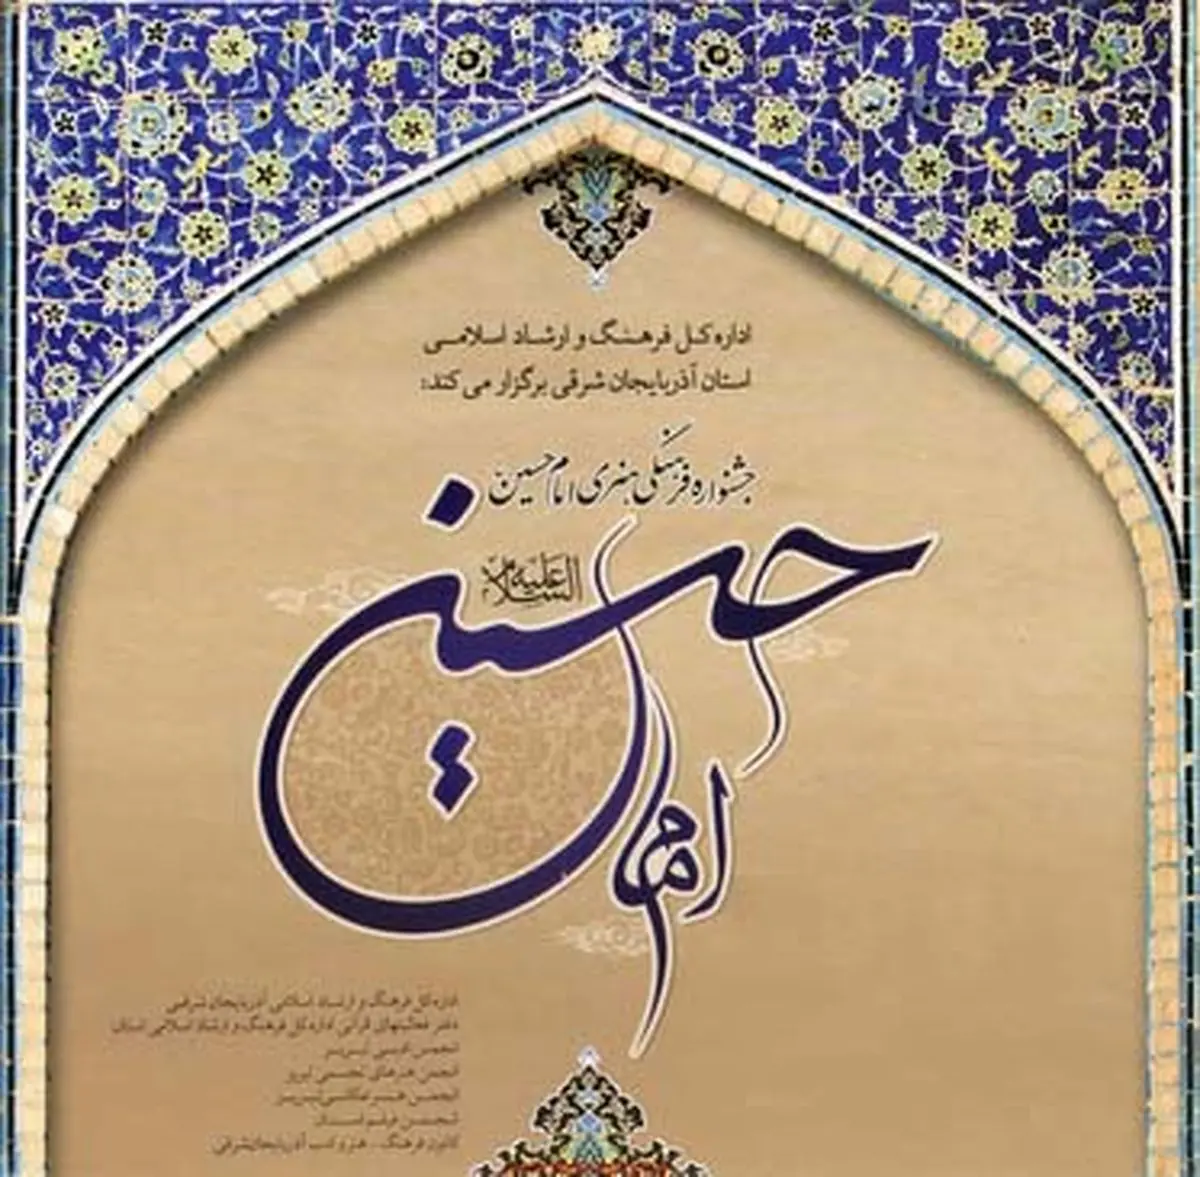 اداره کل فرهنگ و ارشاد اسلامی
استان آذربایجان شرقی برگزار می کند:
جشنواره فرهنگی هنری امام حسین
امام حسین
علیه السلام
اداره کل فرهنگ و ارشاد اسلامی آذربایجان شرقی
دفتر فعالیتهای قرآنی اداره کل فرهنگ و ارشاد اسلامی استان
انجمن ادبی تبریز
انجمن هنرهای تجسمی تبریز
انجمن هنر عکاسی تبریز
انجمن فیلم استان
کانون فرهنگ - هنر و ادب آذربایجان شرقی